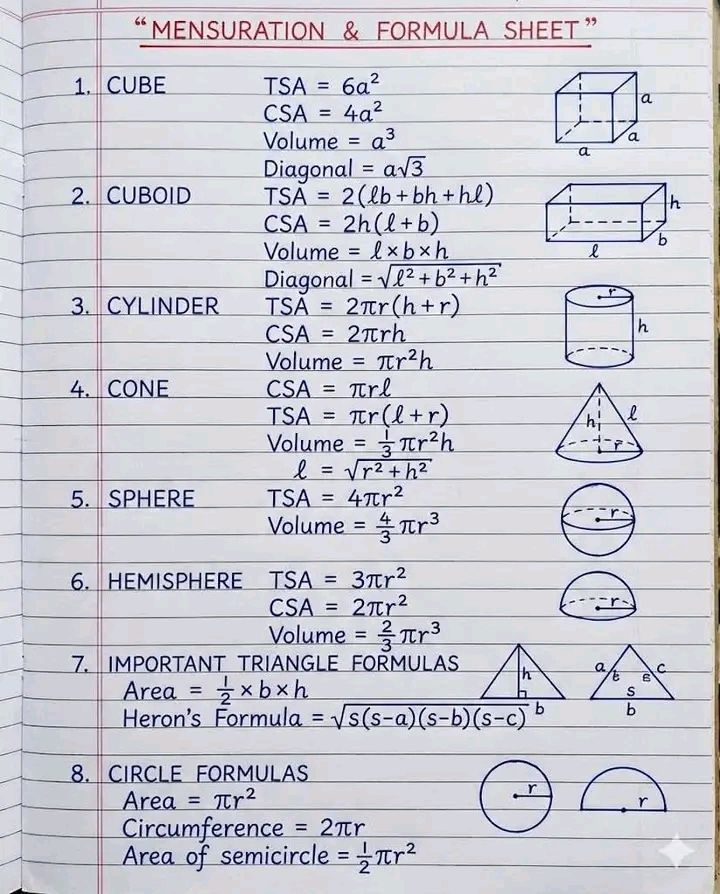 “MENSURATION & FORMULA SHEET”
1. CUBE TSA = 6a²
CSA = 4a²
Volume = a³
Diagonal = a√3
a
a
a
2. CUBOID TSA = 2(lb+bh+hl)
CSA = 2h(l+b)
Volume = l×b×h
Diagonal = √l²+b²+h²
h
b
l
3. CYLINDER TSA = 2πr(h+r)
CSA = 2πrh
Volume = πr²h
r
h
4. CONE CSA = πrl
TSA = πr(l+r)
Volume = 1/3 πr²h
l = √r²+h²
h
l
r
5. SPHERE TSA = 4πr²
Volume = 4/3 πr³
r
6. HEMISPHERE TSA = 3πr²
CSA = 2πr²
Volume = 2/3 πr³
r
7. IMPORTANT TRIANGLE FORMULAS
Area = 1/2 × b × h
Heron's Formula = √s(s-a)(s-b)(s-c)
h
b
a
c
s
b
8. CIRCLE FORMULAS
Area = πr²
Circumference = 2πr
Area of semicircle = 1/2 πr²
r
r